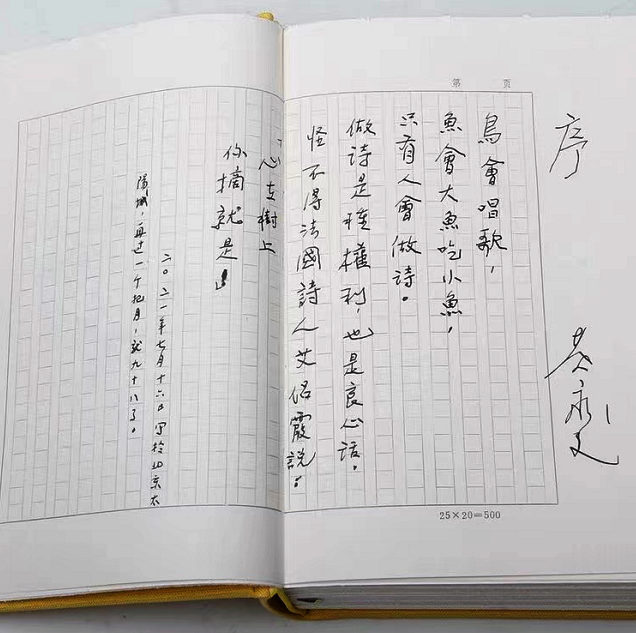 第 页
序
黄永玉
鳥會唱歌，
魚會大魚吃小魚，
只有人會做诗。
做诗是種權利，也是良心话。
怪不得法國詩人艾侶霞説：
「心在樹上
你摘就是」
二〇二一年七月十六日写於北京太
陽城，再过一个把月，就九十八了。
25×20=500